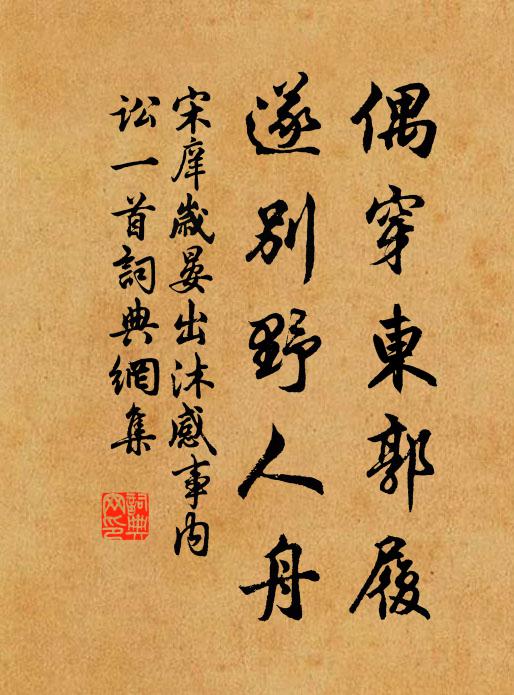 偶穿東郭履
遂別野人舟
宋庠歲晏出沐感事内
訟一首詞典網集
詞典网印